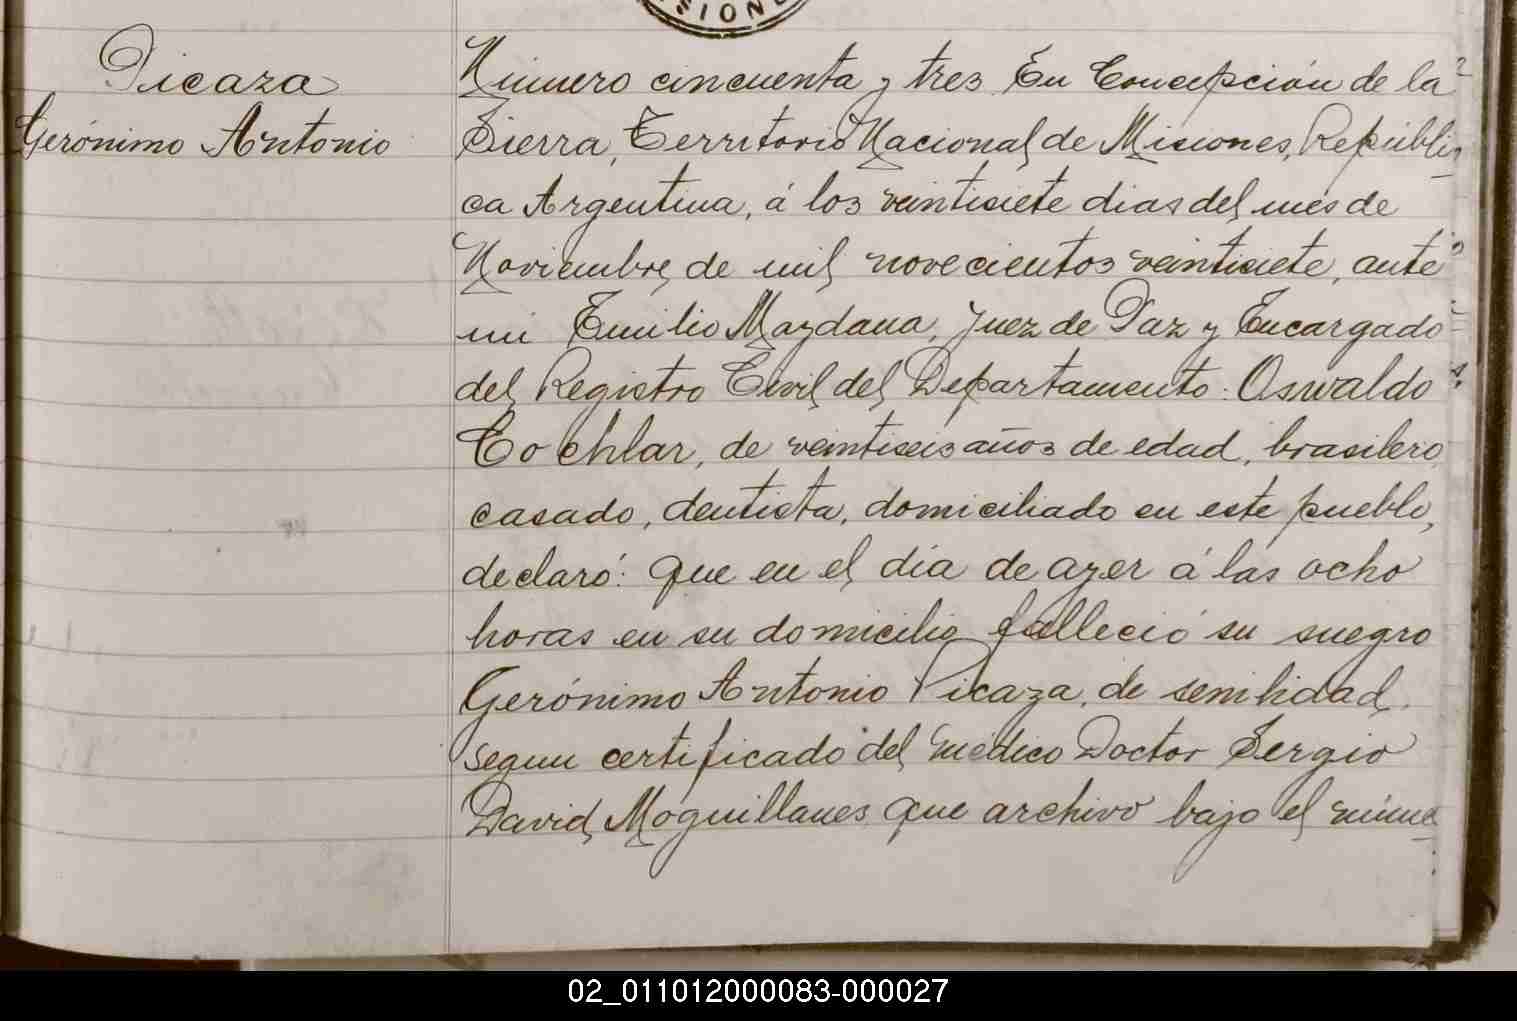 SIONE
Picaza
Gerónimo Antonio
Número cincuenta y tres En Concepción de la
Sierra, Territorio Nacional de Misiones, Repúbli-
ca Argentina, á los veintisiete dias del mes de
Noviembre de mil novecientos veintisiete, ante
mi Emilio Maydana, Juez de Paz y Encargado
del Registro Civil del Departamento: Oswaldo
Cochlar, de veintiseis años de edad, brasilero,
casado, dentista, domiciliado en este pueblo,
declaró: que en el día de ayer á las ocho
horas en su domicilio falleció su suegro
Gerónimo Antonio Picaza, de senilidad,
segun certificado del médico Doctor Sergio
David Moguillanes que archivo bajo el núme-
02_011012000083-000027